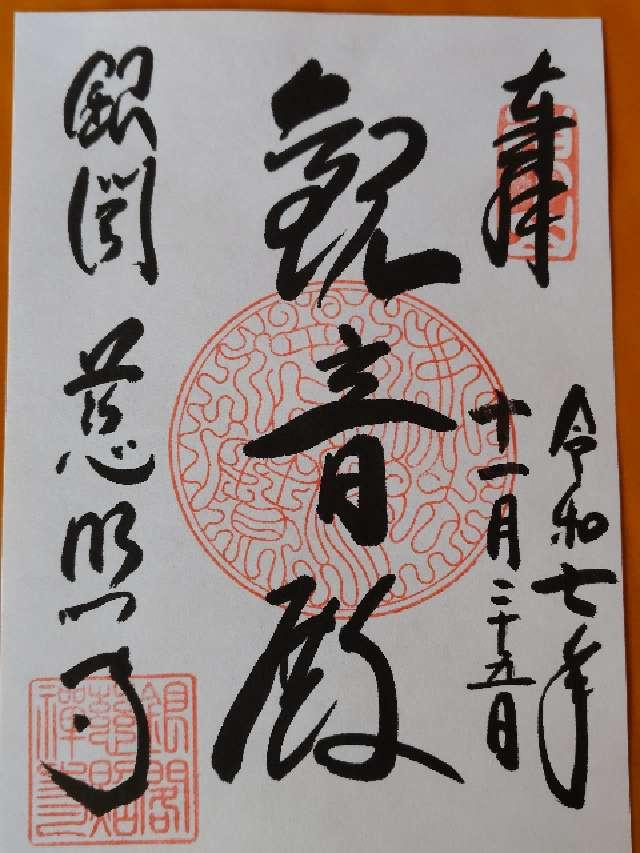 奉拝
令和七年
十一月二十五日
観音殿
銀閣 慈照寺
銀閣
慈照
禅寺